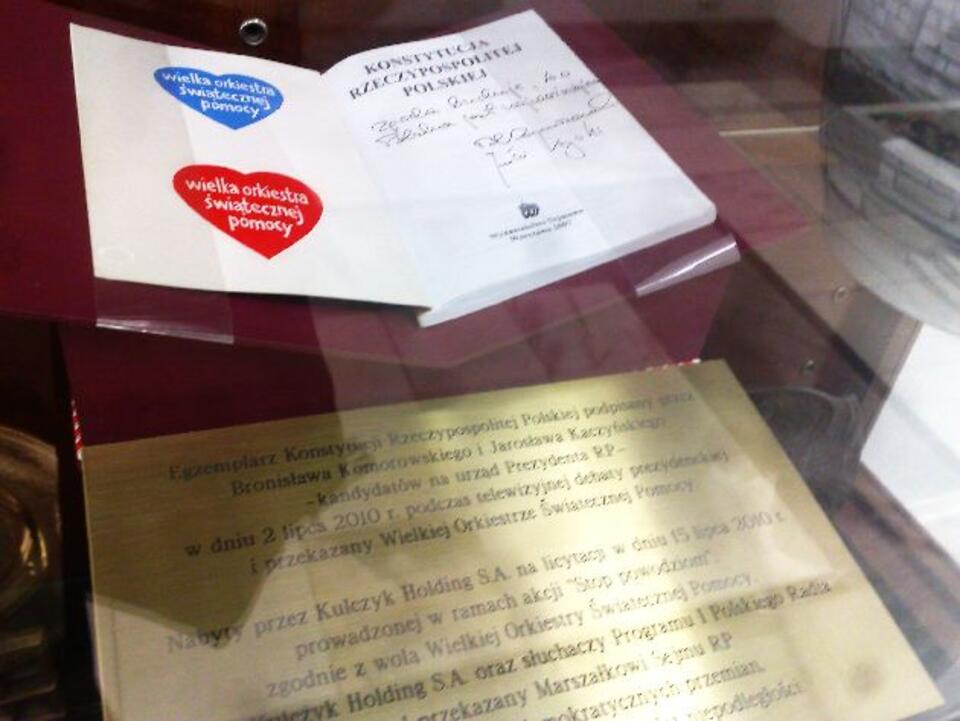 wielka orkiestra
świątecznej
pomocy
wielka orkiestra
świątecznej
pomocy
KONSTYTUCJA
RZECZYPOSPOLITEJ
POLSKIEJ
Zgoda buduje, bo
Polska jest najważniejsza
Warszawa
Egzemplarz Konstytucji Rzeczypospolitej Polskiej podpisany przez
Bronisława Komorowskiego i Jarosława Kaczyńskiego
- kandydatów na urząd Prezydenta RP -
w dniu 2 lipca 2010 r. podczas telewizyjnej debaty prezydenckiej
i przekazany Wielkiej Orkiestrze Świątecznej Pomocy
Nabyty przez Kulczyk Holding S.A. na licytacji w dniu 15 lipca 2010 r.
prowadzonej w ramach akcji "Stop powodziom".
zgodnie z wolą Wielkiej Orkiestry Świątecznej Pomocy,
Kulczyk Holding S.A. oraz słuchaczy Programu I Polskiego Radia
przekazany Marszałkowi Sejmu RP
demokratycznych przemian,
niepodległości